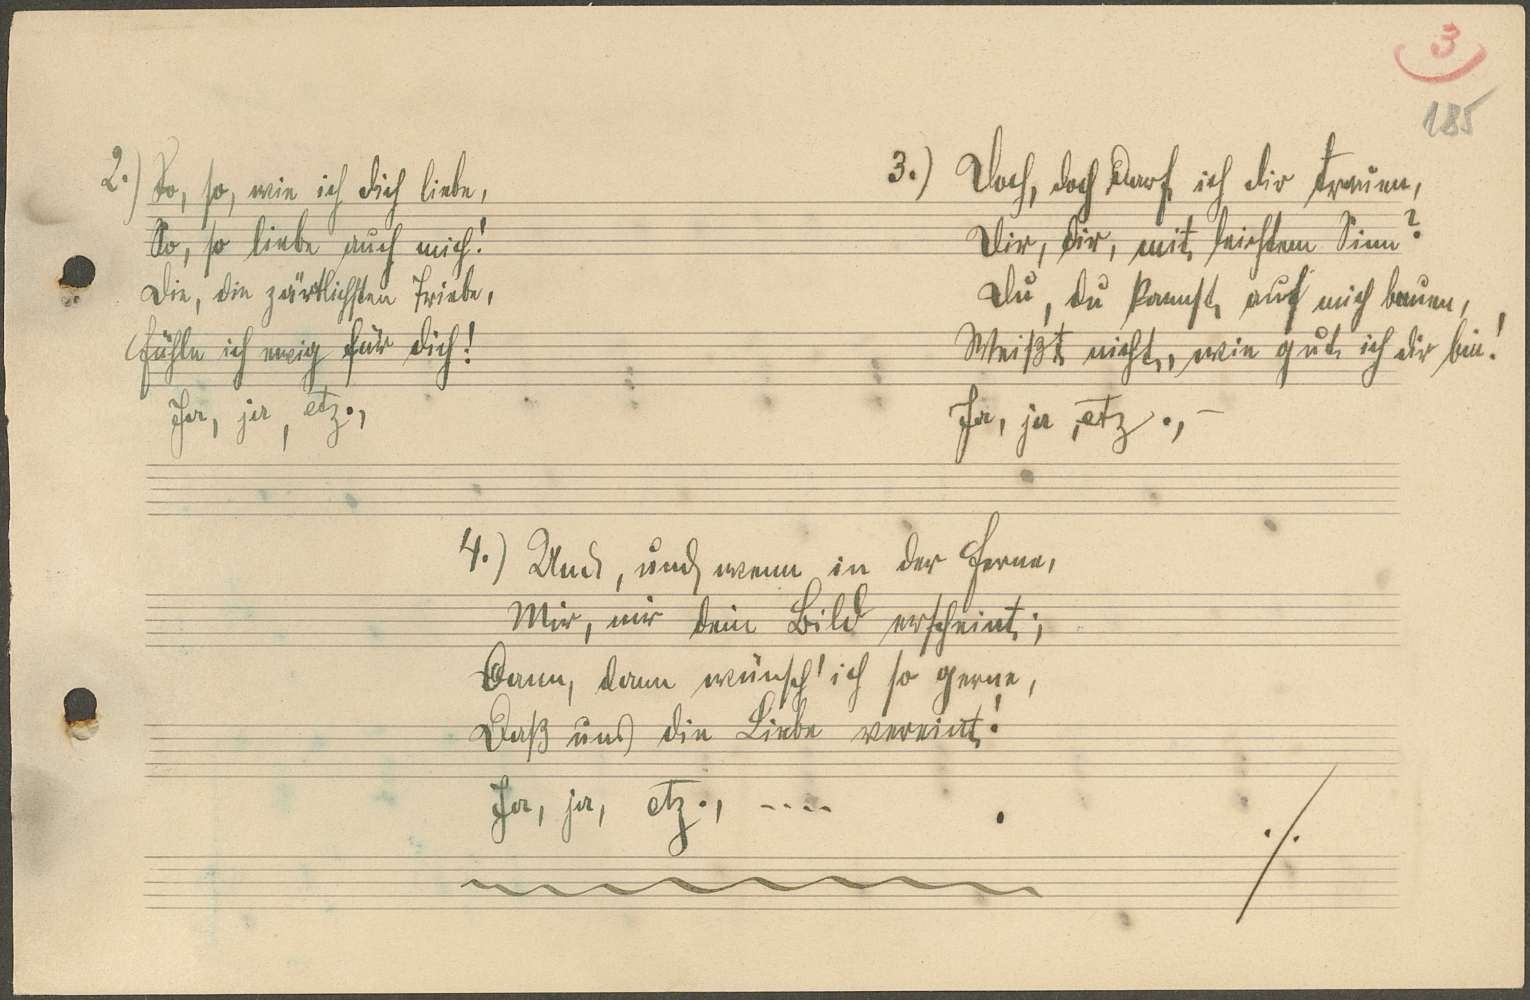 3
185
2.) So, so, wie ich dich liebe,
So, so liebe auch mich!
Die, die zärtlichsten Triebe,
Fühle ich ewig für dich!
Ja, ja, etz.,
3.) Doch, doch darf ich dir trauen,
Dir, dir, mit leichtem Sinn?
Du, du kannst auf mich bauen,
Weißt nicht, wie gut ich dir bin!
Ja, ja, etz.,–
4.) Und, und wenn in der Ferne,
Mir, mir dein Bild erscheint;
Dann, dann wünsch' ich so gerne,
Daß uns die Liebe vereint!
Ja, ja, etz., ----
./.